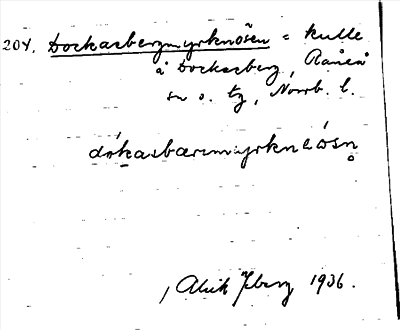 204. Dockasbergmyrknösen = kulle
å Dockasberg, Råneå
sn o. tg, Norrb. l.
dókasbærmyrknⱥøsn̥
Alvik 1936.